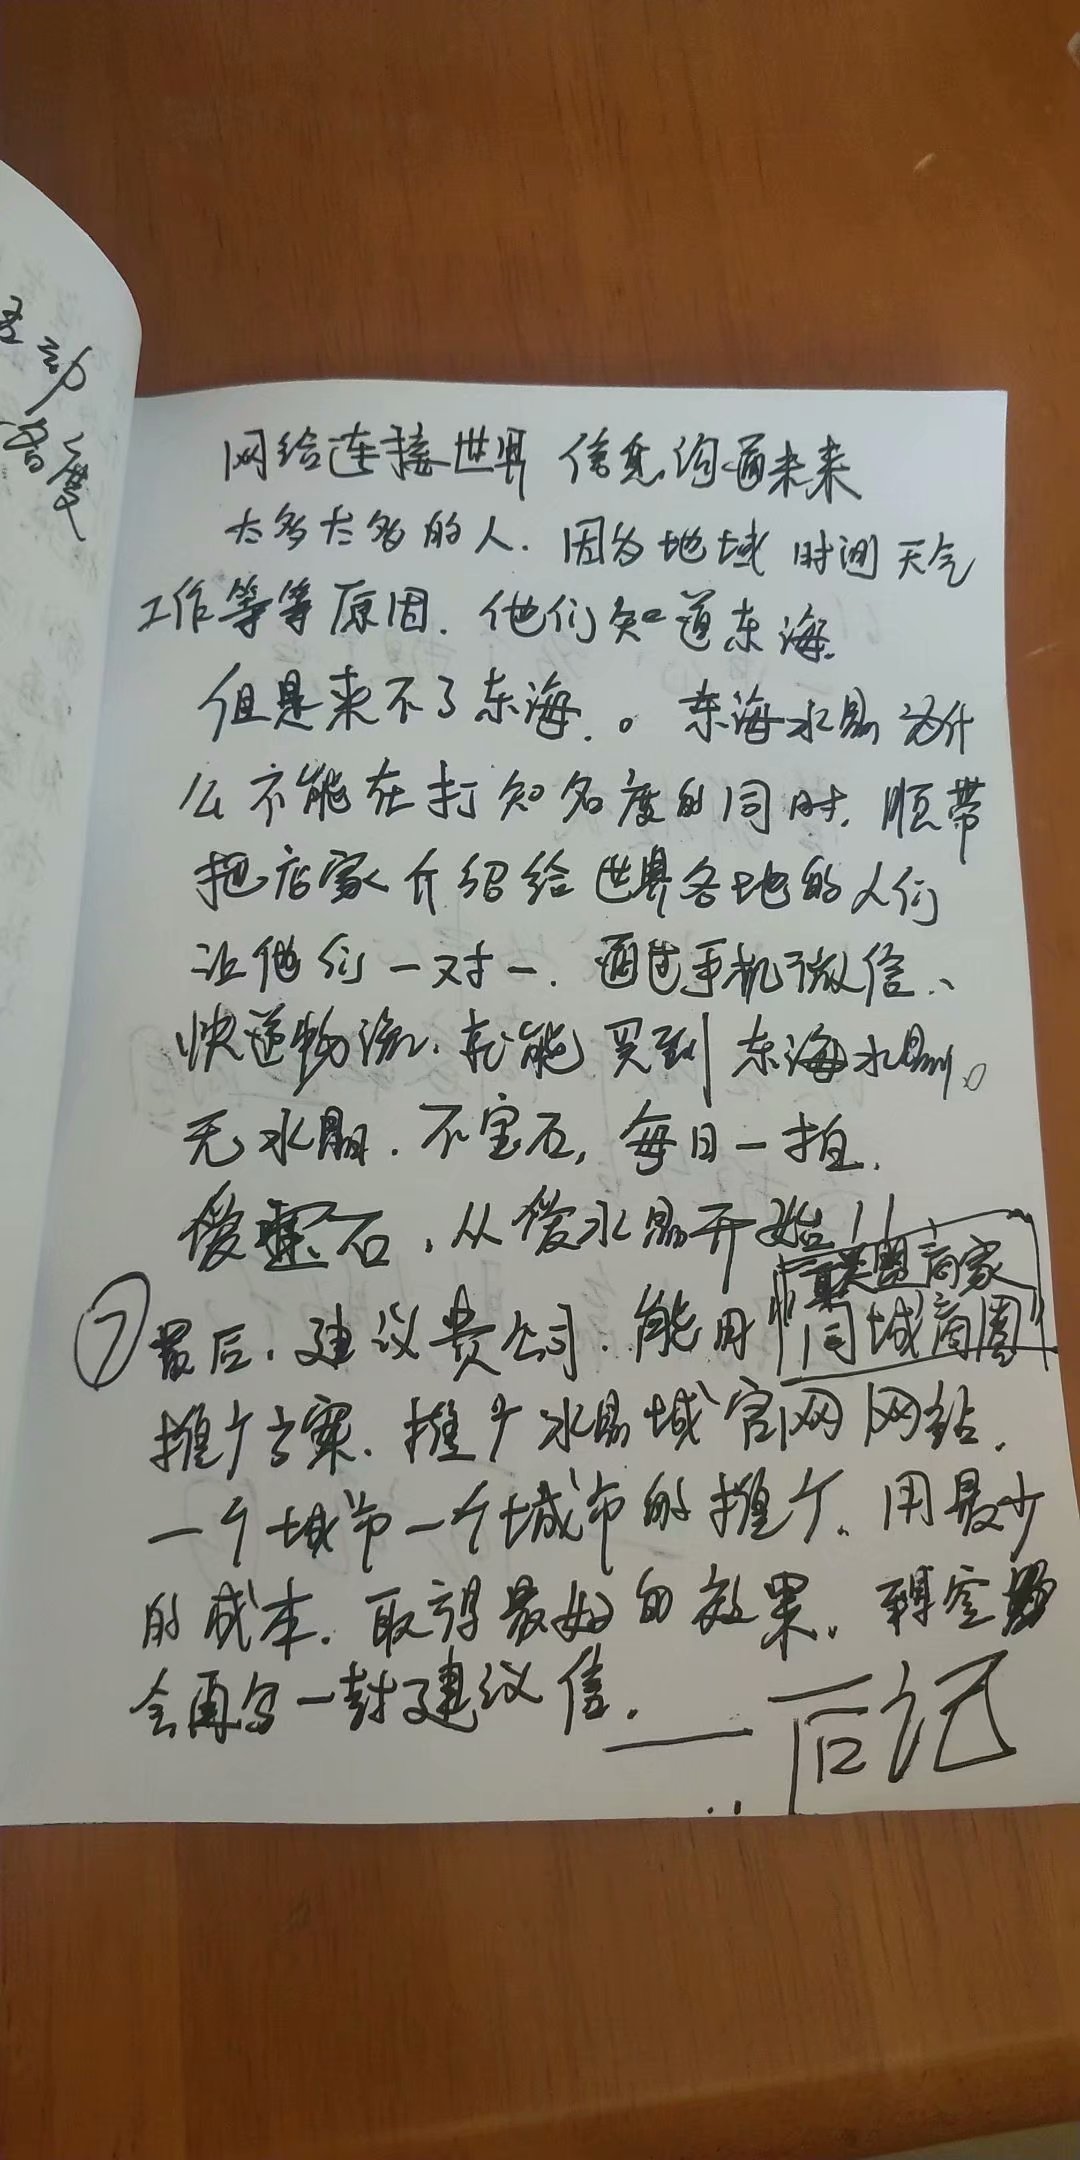 网给连接世界 信息沟通未来
太多太多的人.因为地域 时间 天气
工作等等原因.他们知道东海.
但是来不了东海.。东海水晶为什
么不能在打知名度的同时.顺带
把店家介绍给世界各地的人们
让他们一对一.通过手机微信、
快递物流.就能买到东海水晶。
无水晶.不宝石,每日一拍.
爱宝石,从爱水晶开始!!
⑦最后.建议贵公司.能用"联盟商家
同城商圈"
推广方案.推广水晶城官网网站.
一个城市一个城市的推广.用最少
的成本.取得最好的效果.有空
会再写一封建议信.
——后记